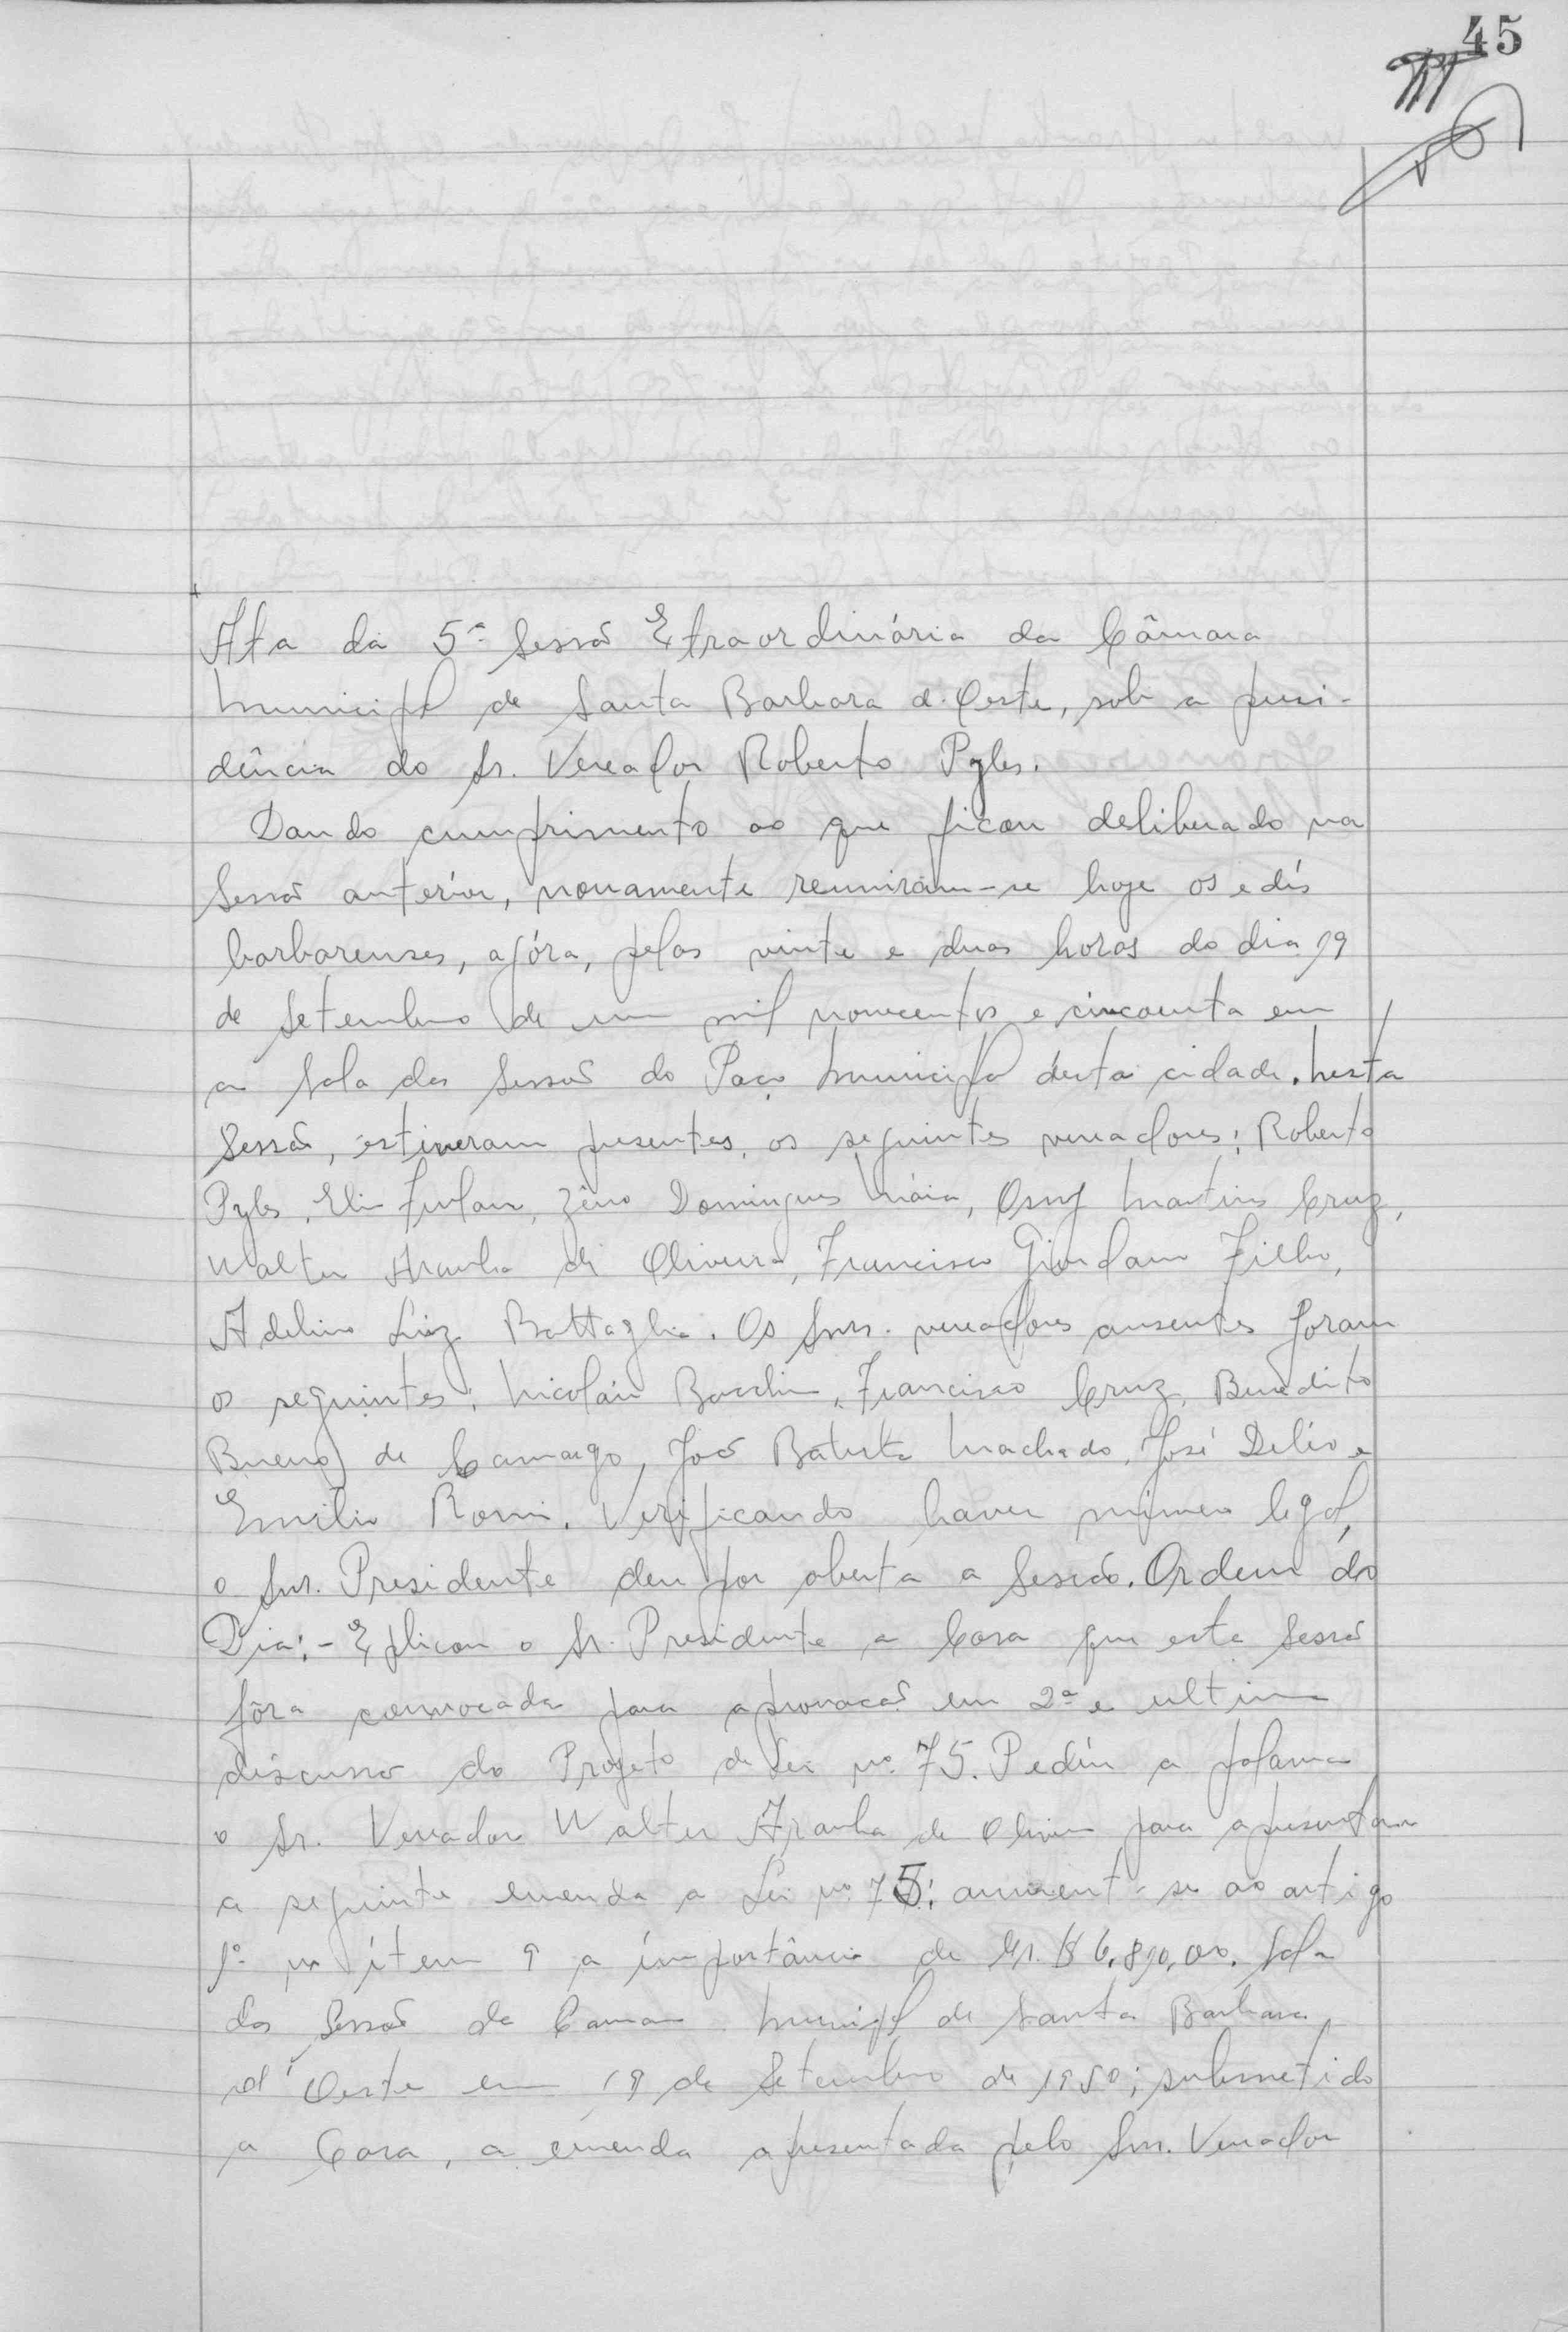 45
Ata da 5ª Sessão Extraordinária da Câmara
Municipal de Santa Barbara d'Oeste, sob a presi-
dência do Sr. Vereador Roberto Pyles.
Dando cumprimento ao que ficou deliberado na
Sessão anterior, novamente reuniram-se hoje os edís
barbarenses, agóra, pelas vinte e duas horas do dia 19
de Setembro de um mil novecentos e cincoenta em
a Sala das Sessões do Paço Municipal desta cidade. Nesta
Sessão, estiveram presentes, os seguintes vereadores: Roberto
Pyles, Elio Furlan, Zeno Domingues Máia, Osny Martins Cruz,
Walter Aranha de Oliveira, Francisco Giordano Filho,
Adelino Luiz Battaglia. Os Snrs. vereadores ausentes foram
os seguintes: Nicoláu Bacchin, Francisco Cruz, Benedito
Bueno de Camargo, João Batista Machado, José Deléo e
Emilio Romi. Verificando haver número legal,
o Snr. Presidente deu por aberta a Sessão. Ordem do
Dia:- Explicou o Sr. Presidente a Casa que esta Sessão
fôra convocada para aprovação em 2ª e ultima
discussão do Projeto de Lei nº 75. Pediu a palavra
o Sr. Vereador Walter Aranha de Oliveira para apresentar
a seguinte emenda a Lei nº 75: aumente-se ao artigo
1º no ítem 9 a importância de Cr.$ 6.890,00. Sala
das Sessões da Camara Municipal de Santa Barbara
d'Oeste em 19 de Setembro de 1950; submetido
a Casa, a emenda apresentada pelo Snr. Vereador